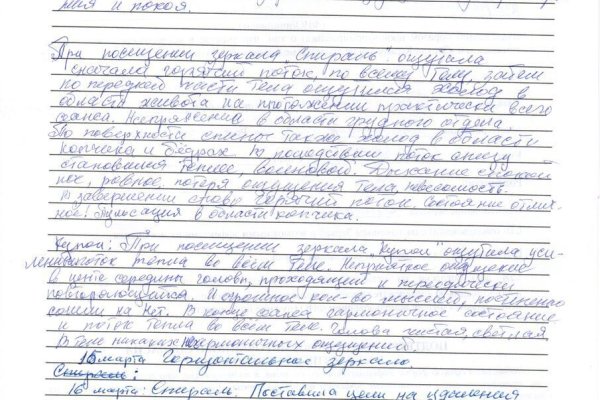 ния и покоя.
При посещении зеркала "Спираль" ощутила
сначала горячий поток, по всему телу, затем
по передней части тела ощущался холод в
области живота на протяжении практически всего
сеанса. Напряжение в области грудного отдела.
По поверхности спины также холод в области
копчика и бедрах. В последствии поток снизу
становился теплее, волновой. Дыхание спокой
ное, ровное, потеря ощущения тела, невесомость.
В завершении снова горячий поток. Состояние отлич-
ное. Пульсация в области копчика.
Купол: При посещении зеркала "Купол" ощутила уси-
ление поток тепла во всем теле. Неприятное ощущение
в центре середины головы, проходящий и периодически
повторяющийся. И огромное кол-во мыслей, постепенно
сошли на нет. В конце сеанса гармоничное состояние
и поток тепла во всем теле. Голова чистая, светлая
В теле никаких негармоничных ощущений.
15 марта Горизонтальное зеркало.
Спираль:
16 марта: Спираль. Поставила цели на удаления